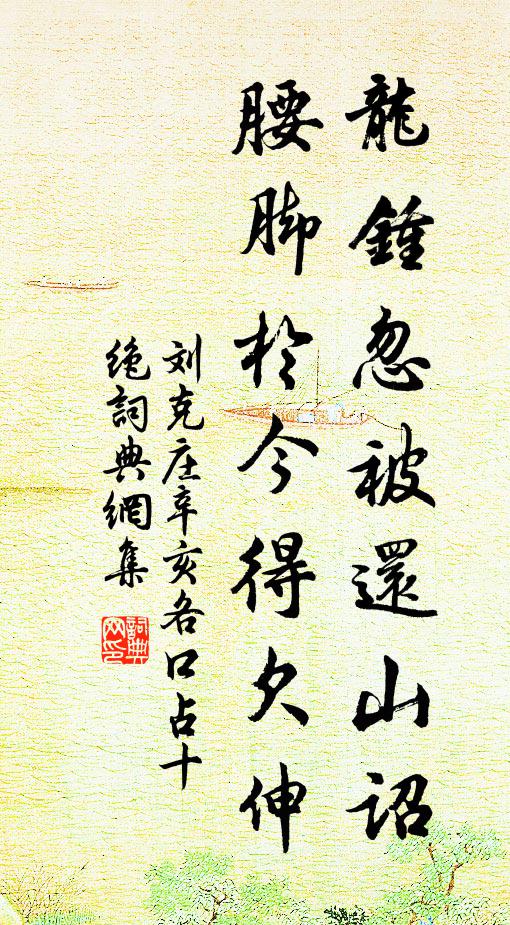 龍鍾忽被還山詔
腰脚於今得欠伸
刘克庄辛亥各口占十
绝詞典網集
詞典
网印